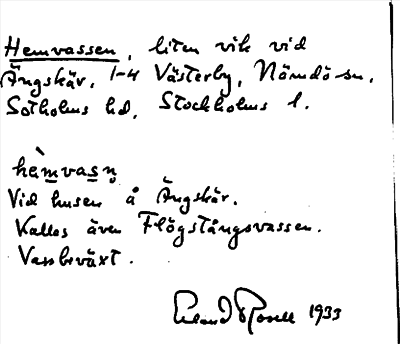 Hemvassen, liten vik vid
Ängskär, 1-4 Västerby, Nämdö sn,
Sotholms hd, Stockholms l.
hèmvasn̥
Vid husen å Ängskär.
Kallas även Flögstångsvassen.
Vassbeväxt.
Erland Rosell 1933